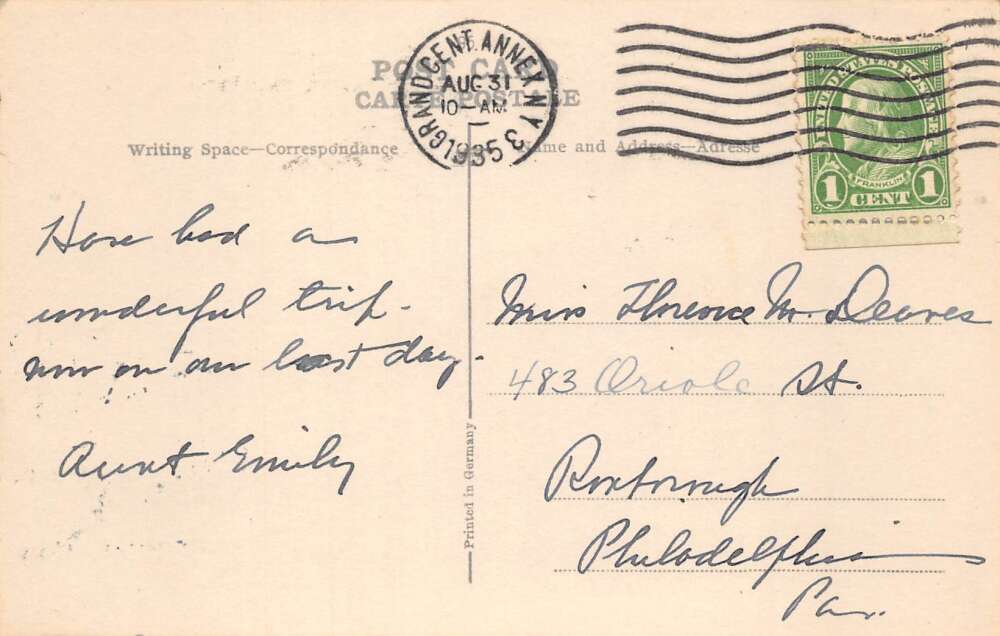 POST CARD
CARTE POSTALE
GRAND CENT. ANNEX N.Y.
AUG 31
10-AM
1935
3
UNITED STATES POSTAGE
FRANKLIN
1 CENT 1
Writing Space—Correspondance
Name and Address—Adresse
Have had a
wonderful trip.
now on our last day.
Aunt Emily
Printed in Germany
Miss Florence M. Deaves
483 Oriole St.
Roxborough
Philadelphia
Pa.